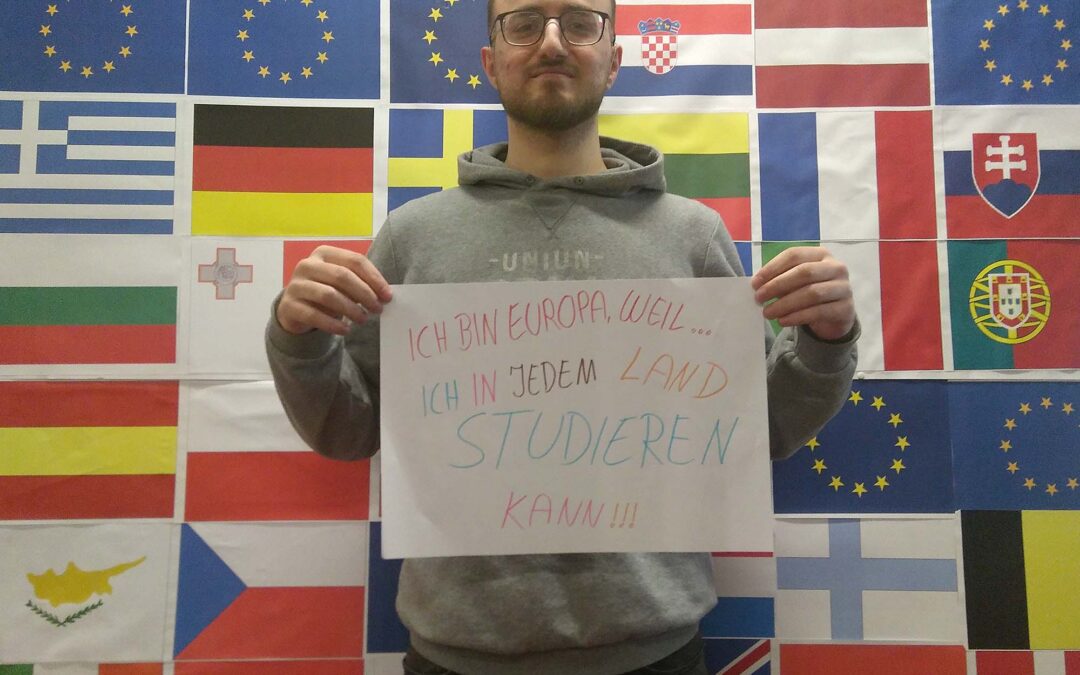 -UNIUN-
ICH BIN EUROPA, WEIL...
ICH IN JEDEM LAND
STUDIEREN
KANN!!!